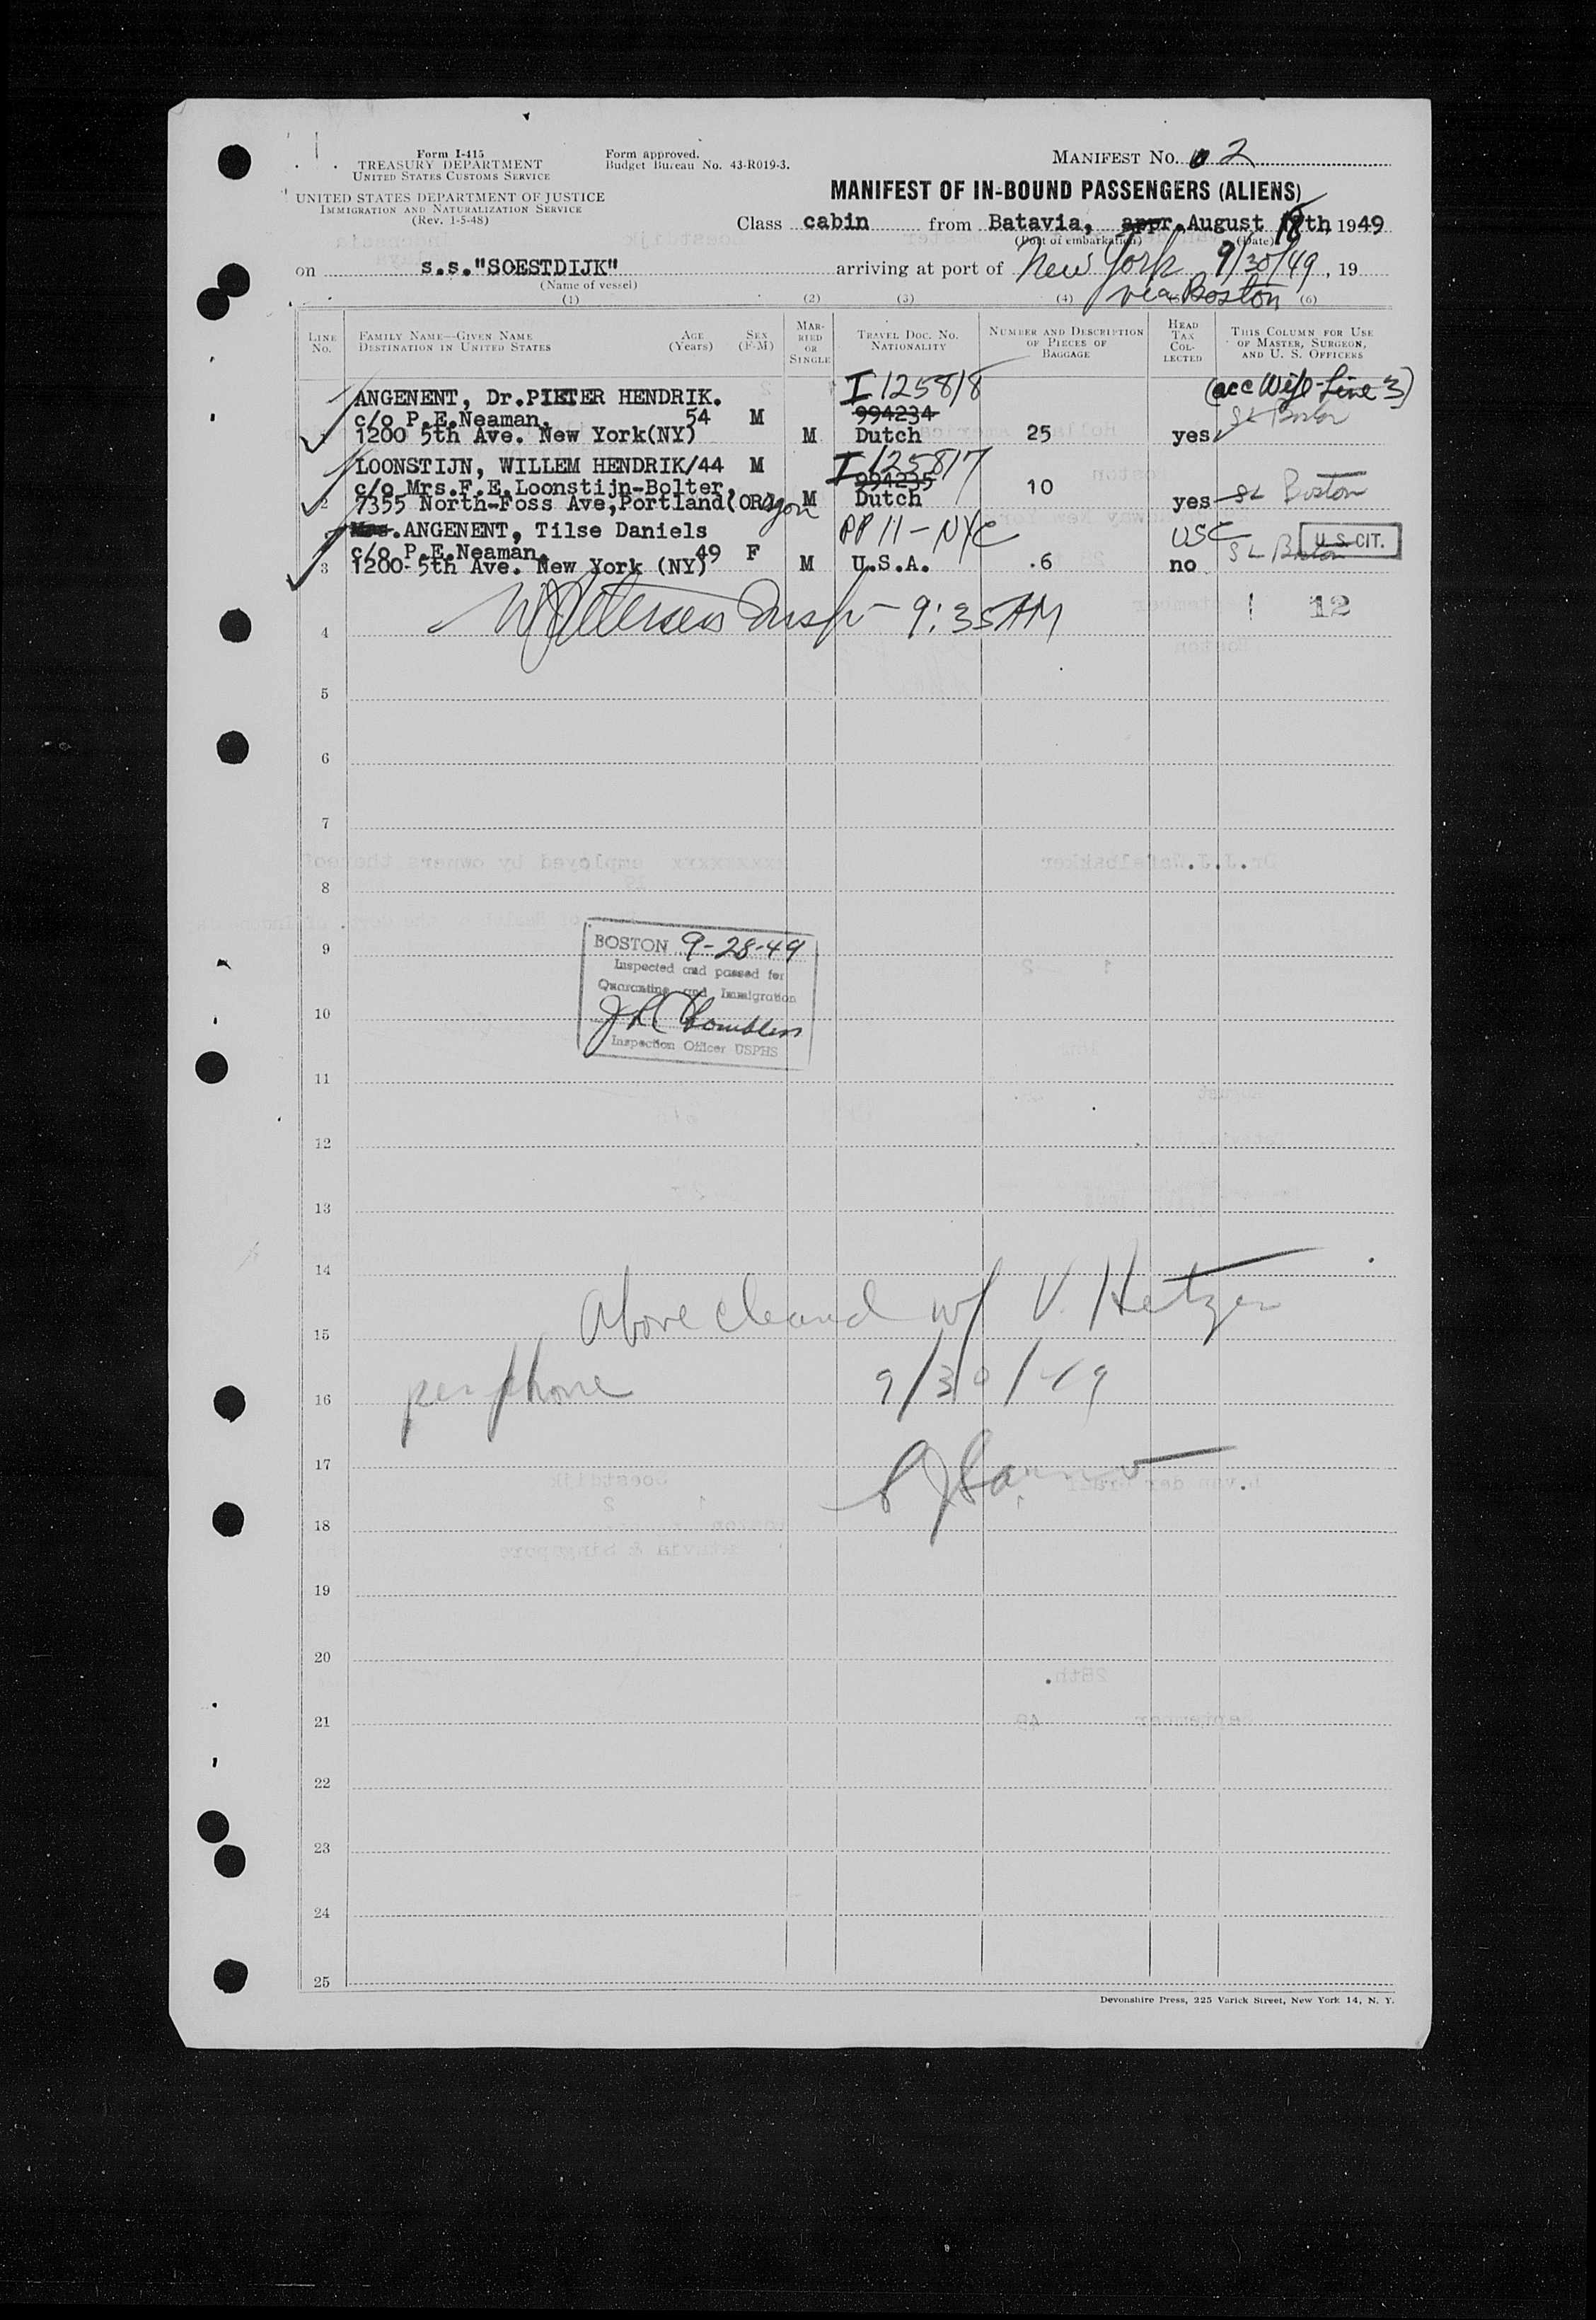 Form I-415
TREASURY DEPARTMENT
UNITED STATES CUSTOMS SERVICE
UNITED STATES DEPARTMENT OF JUSTICE
IMMIGRATION AND NATURALIZATION SERVICE
(Rev. 1-5-48)
Form approved.
Budget Bureau No. 43-R019-3.
MANIFEST NO. 2
MANIFEST OF IN-BOUND PASSENGERS (ALIENS)
Class cabin from Batavia, appr. August 18th 1949
(Port of embarkation) (Date)
on s.s."SOESTDIJK" arriving at port of New York 9/30/49, 19
(Name of vessel) via Boston
(1) (2) (3) (4) (6)
LINE No. FAMILY NAME—GIVEN NAME DESTINATION IN UNITED STATES AGE (Years) SEX (F-M) MARRIED OR SINGLE TRAVEL DOC. NO. NATIONALITY NUMBER AND DESCRIPTION OF PIECES OF BAGGAGE HEAD TAX COLLECTED THIS COLUMN FOR USE OF MASTER, SURGEON, AND U. S. OFFICERS
ANGENENT, Dr.PIETER HENDRIK. I 125818 (acc Wife-Line 3)
c/o P.E.Neaman, 54 M 994234 SL Boston
1 1200 5th Ave. New York(NY) M Dutch 25 yes
LOONSTIJN, WILLEM HENDRIK/44 M I 125817
c/o Mrs.F.E.Loonstijn-Bolter, 994235 10
2 7355 North-Foss Ave,Portland(ORegon M Dutch yes SL Boston
Mrs.ANGENENT, Tilse Daniels PP 11-NYC USC U.S. CIT.
c/o P.E.Neaman, 49 F SL Boston
3 1200-5th Ave. New York (NY) M U.S.A. .6 no
4 Insp- 9:35AM 12
5
6
7
8
9
BOSTON 9-28-49
Inspected and passed for
Quarantine and Immigration
Inspection Officer USPHS
10
11
12
13
14
Above cleared w/ V. Hetzer
15
per phone 9/30/49
16
17
18
19
20
21
22
23
24
25
Devonshire Press, 225 Varick Street, New York 14, N. Y.